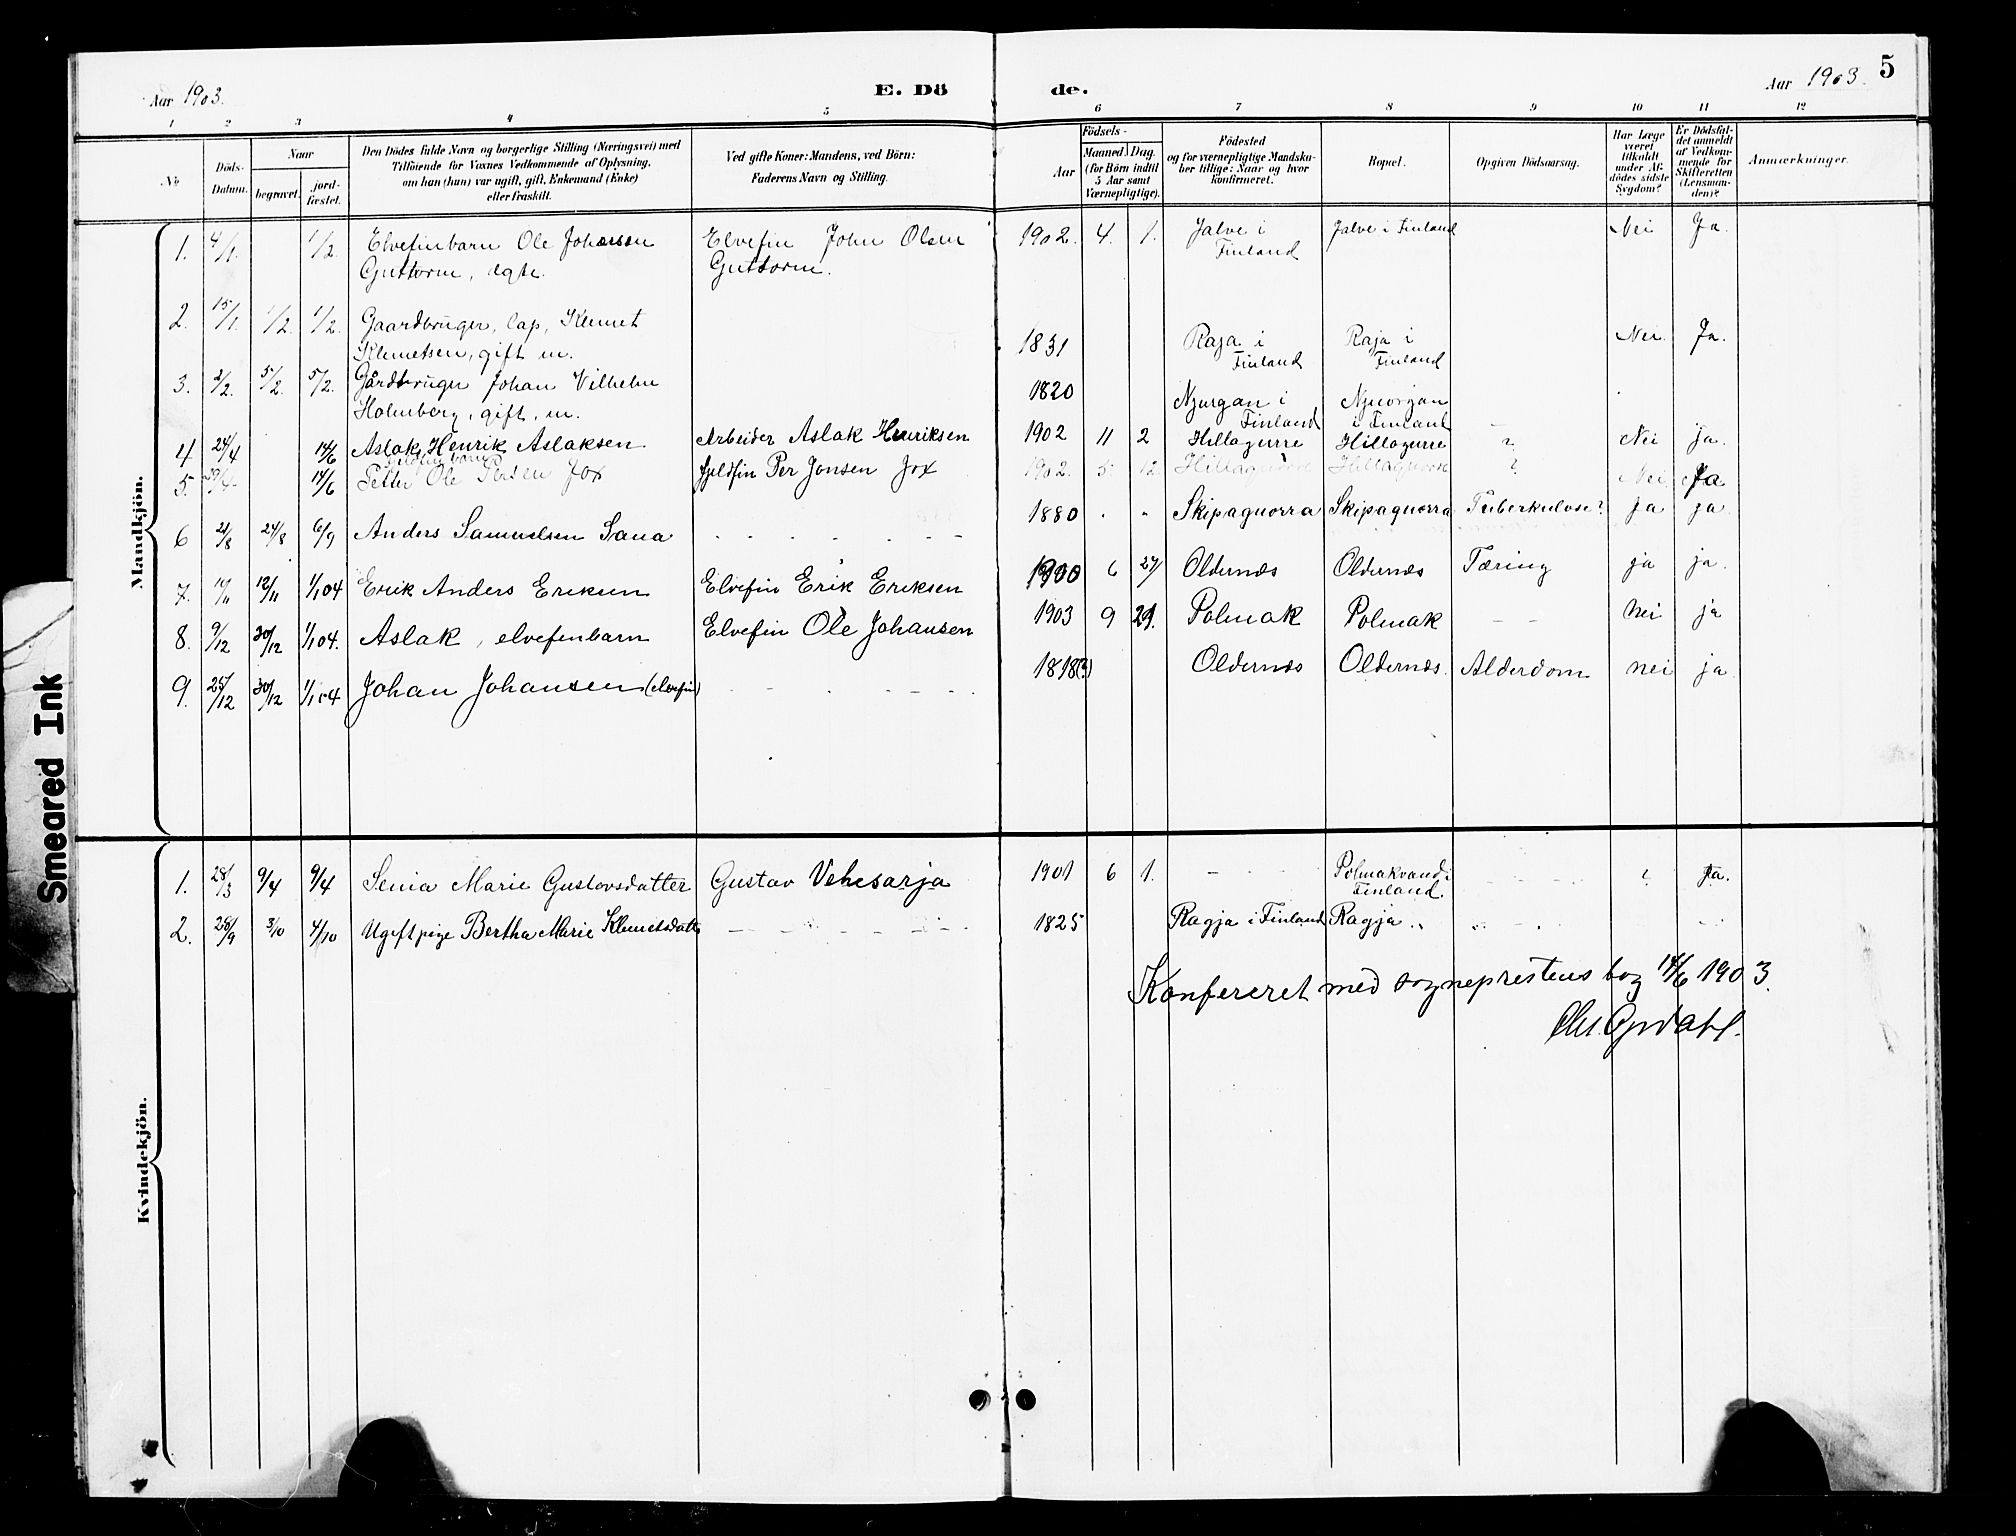 Aar 1903.
E. Dö
de.
Aar 1903.
5
1 2 3 4 5 6 7 8 9 10 11 12
No
Döds-Datum.
Naar
begravet.
jord-fæstet.
Den Dödes fulde Navn og borgerlige Stilling (Næringsvei) med
Tilföiende for Voxnes Vedkommende af Oplysning,
om han (hun) var ugift, gift, Enkemand (Enke)
eller fraskilt.
Ved gifte Koner: Mandens, ved Börn:
Faderens Navn og Stilling.
Födsels-
Aar
Maaned. Dag.
(for Börn indtil
5 Aar samt
Værnepligtige).
Födested
og for værnepligtige Mandska-
ber tillige: Naar og hvor
konfirmeret.
Bopæl.
Opgiven Dödsaarsag.
Har Læge
været
tilkaldt
under Af-
dödes sidste
Sygdom?
Er Dödsfal-
det anmeldt
af Vedkom-
mende for
Skifteretten
(Lensman-
den)?
Anmærkninger.
Mandkjön.
1. 4/1. 1/2. Elvefinbarn Ole Johansen Elvefin John Olsen 1902. 4. 1. Jalve i Jalve i Finland Nei Ja.
Guttorm, ægte. Guttorm. Finland
2. 15/1. 1/2. 1/2. Gaardbruger, lap, Klemet
Klemetsen, gift m. 1831 Raja i Raja i Nei. Ja.
Finland Finland
3. 2/2. 5/2. 5/2. Gårdbruger Johan Vilhelm 1820 Njurgan i Njuorgan
Holmberg, gift, m. Finland i Finland
4 24/4 14/6 Aslak Henrik Aslaksen Arbeider Aslak Henriksen 1902 11 2 Hillagurre Hillagurre ? Nei ja.
5. 29/4 14/6 Petter Ole Persen Jox fjeldfin Per Jonsen Jox 1902. 5 12 Hillaguorre Hillaguorre ? Nei Ja
6 2/8 24/8 6/9 Anders Samuelsen Sana 1880 Skipaguorra Skipaguorra Tuberkulose? ja ja
7. 10/11 12/11 1/1 04 Erik Anders Eriksen Elvefin Erik Eriksen 1900 6 27 Oldernæs Oldernæs Tæring ja ja.
8. 9/12 30/12 1/1 04. Aslak, elvefinbarn Elvefin Ole Johansen 1903 9 29. Polmak Polmak nei ja
9. 25/12 30/12 1/1 04 Johan Johansen (elvefin) 1818(?) Oldernæs Oldernæs. Alderdom nei ja
Kvindekjön.
1. 28/3 9/4 9/4 Senia Marie Gustavsdatter Gustav Vehcsarja 1901 6 1. Polmakvand i ? Ja.
Finland.
2. 28/9 3/10 4/10 Ugift pige Bertha Marie Klemetsdatt 1825 Ragja i Finland Ragja „
Konfereret med sogneprestens bog 14/6 1903.
Chr. Opdahl.
Smeared Ink